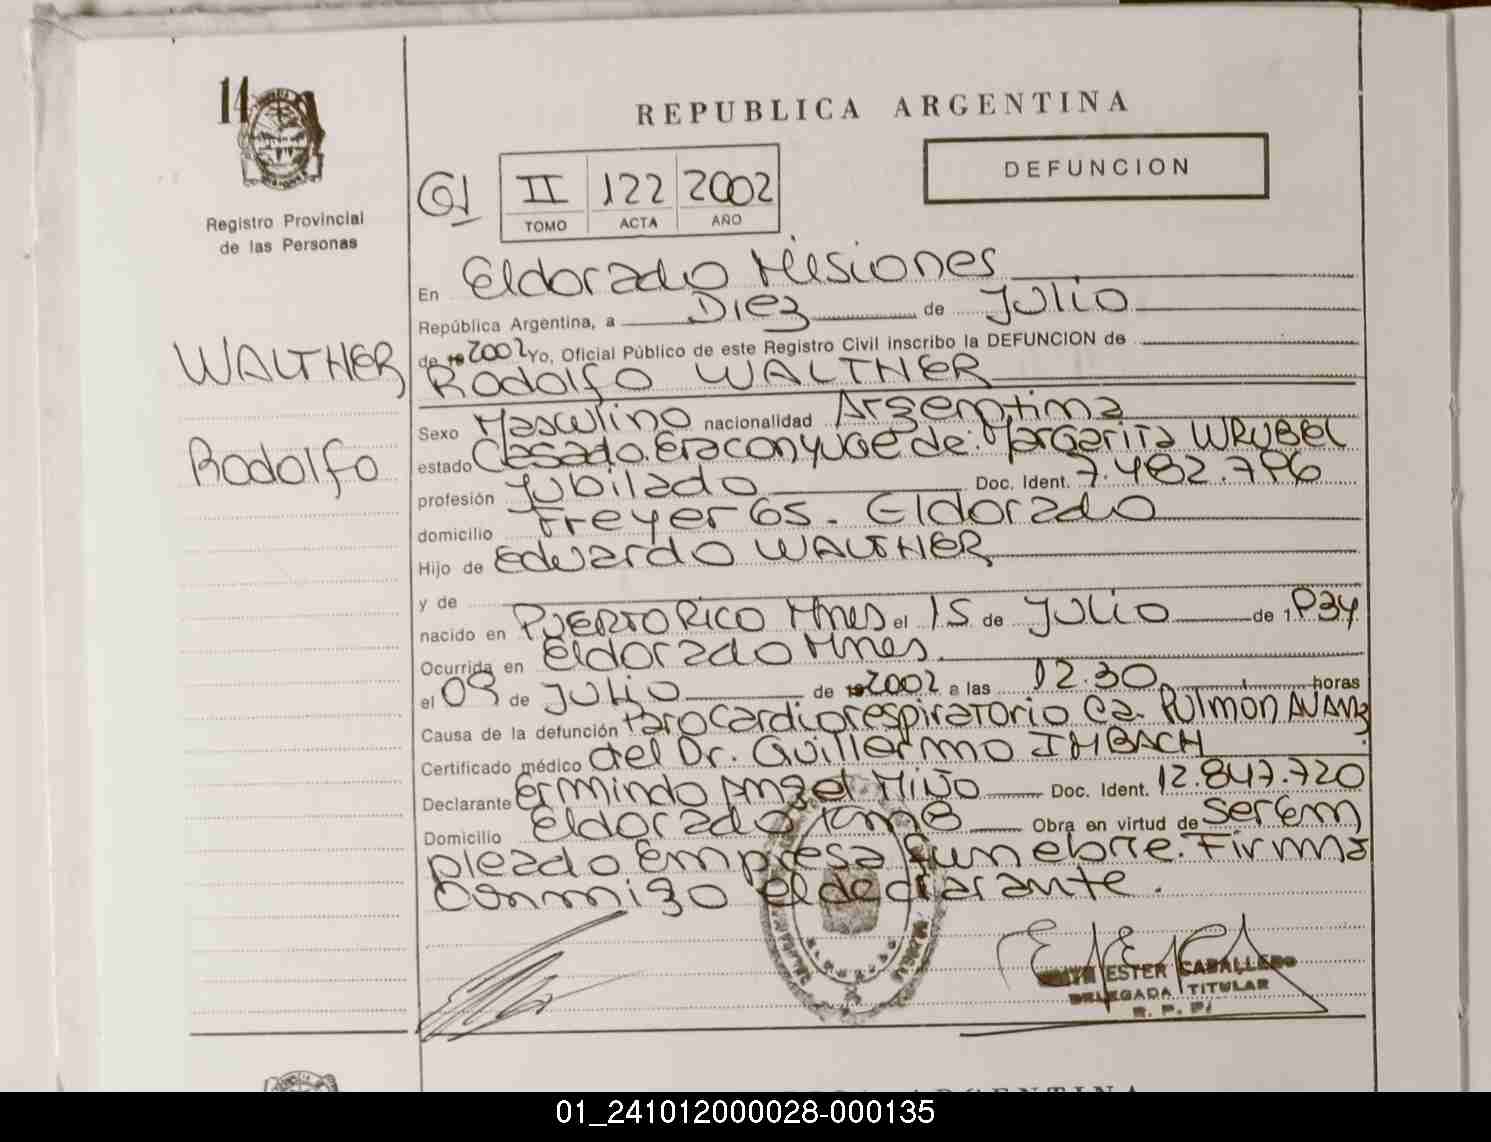 14
Registro Provincial
de las Personas
WALTHER
Rodolfo
REPUBLICA ARGENTINA
DEFUNCION
II 122 2002
TOMO ACTA AÑO
En Eldorado Misiones
República Argentina, a Diez de Julio
de 2002 Yo, Oficial Público de este Registro Civil inscribo la DEFUNCION de
Rodolfo WALTHER
Sexo Masculino nacionalidad Argentina
estado Casado. Era conyuge de: Margarita WRUBEL
profesión Jubilado Doc. Ident. 7.482.796
domicilio Freyer 65. Eldorado
Hijo de Eduardo WALTHER
y de
nacido en PUERTO RICO Mnes el 15 de Julio de 1934
Ocurrida en Eldorado Mnes.
el 09 de Julio de 2002 a las 12.30 horas
Causa de la defunción Parocardiorespiratorio Ca. Pulmon AVANZ
Certificado médico del Dr. Guillermo IMBACH
Declarante Ermindo Angel Miño Doc. Ident. 12.847.720
Domicilio Eldorado Km8 Obra en virtud de Ser Em
pleado Empresa funebre. Firma
conmigo el declarante.
ESTER CABALLERO
DELEGADA TITULAR
R. P. P.
01_241012000028-000135